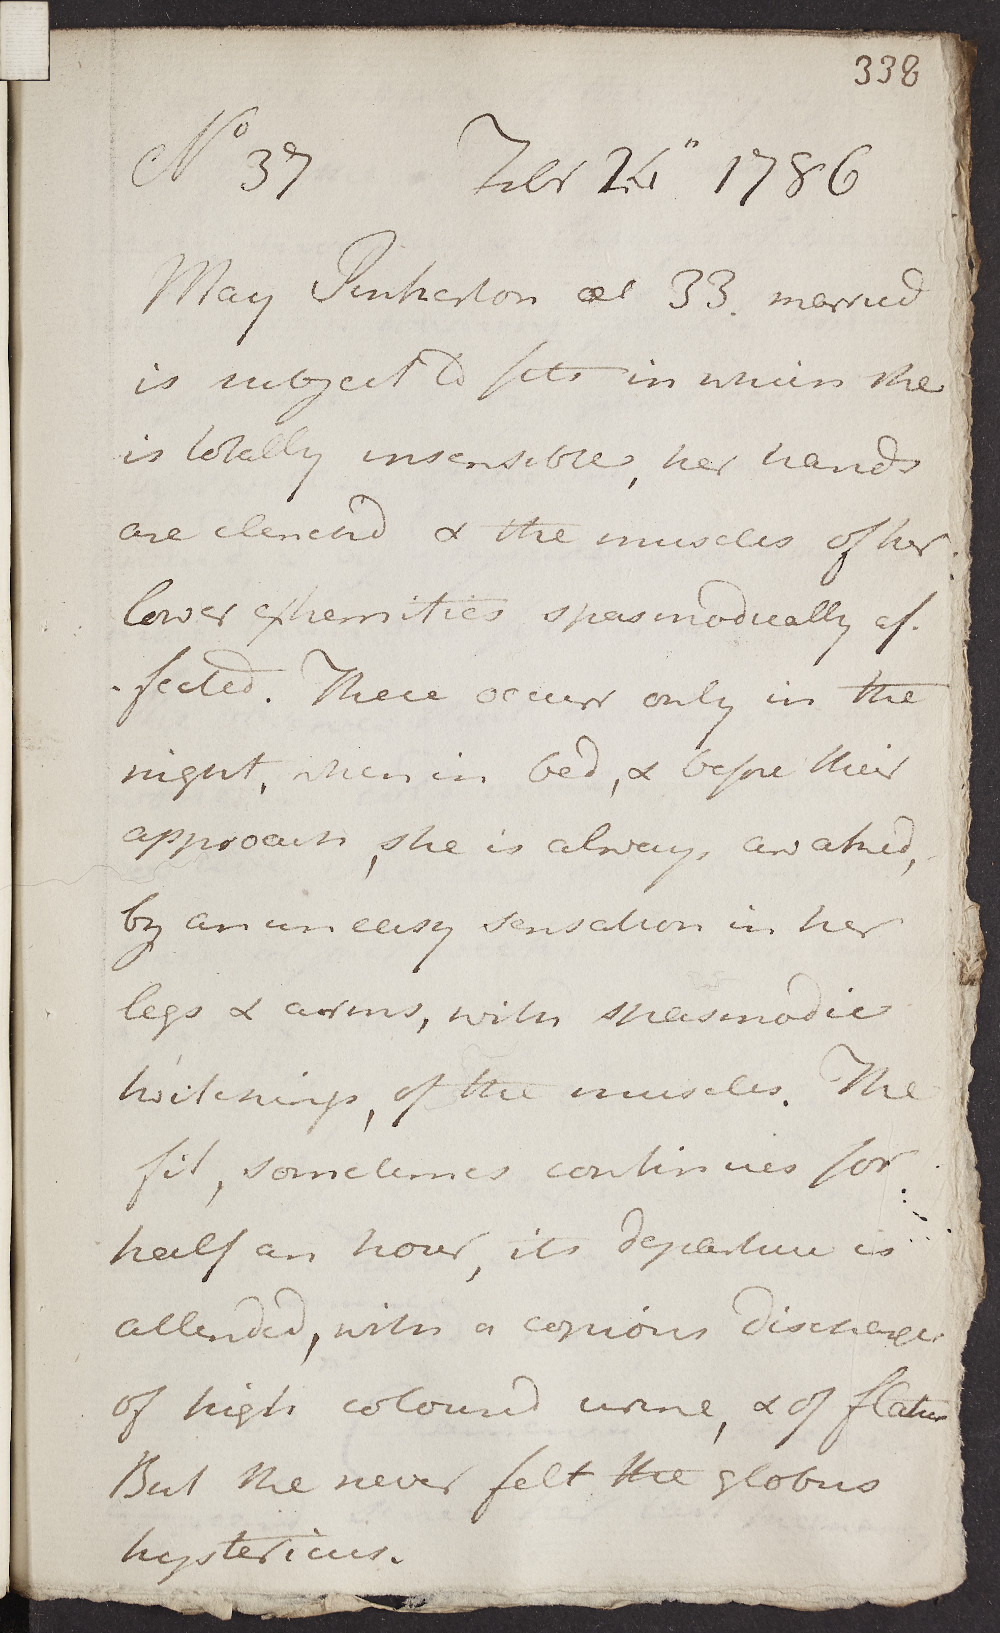 338
No 37 Febr 24" 1786
May Pinkerton aet 33. married
is subject to fits in which she
is totally insensible, her hands
are clench'd & the muscles of her
lower extremities spasmodically af-
-fected. These occurr only in the
night, when in bed, & before their
approach, she is always awaked,
by an uneasy sensation in her
legs & arms, with spasmodic
twitchings, of the muscles. The
fit, sometimes continues for
half an hour, its departure is
attended, with a copious discharge
of high coloured urine, & of flatus
But she never felt the globus
hystericus.